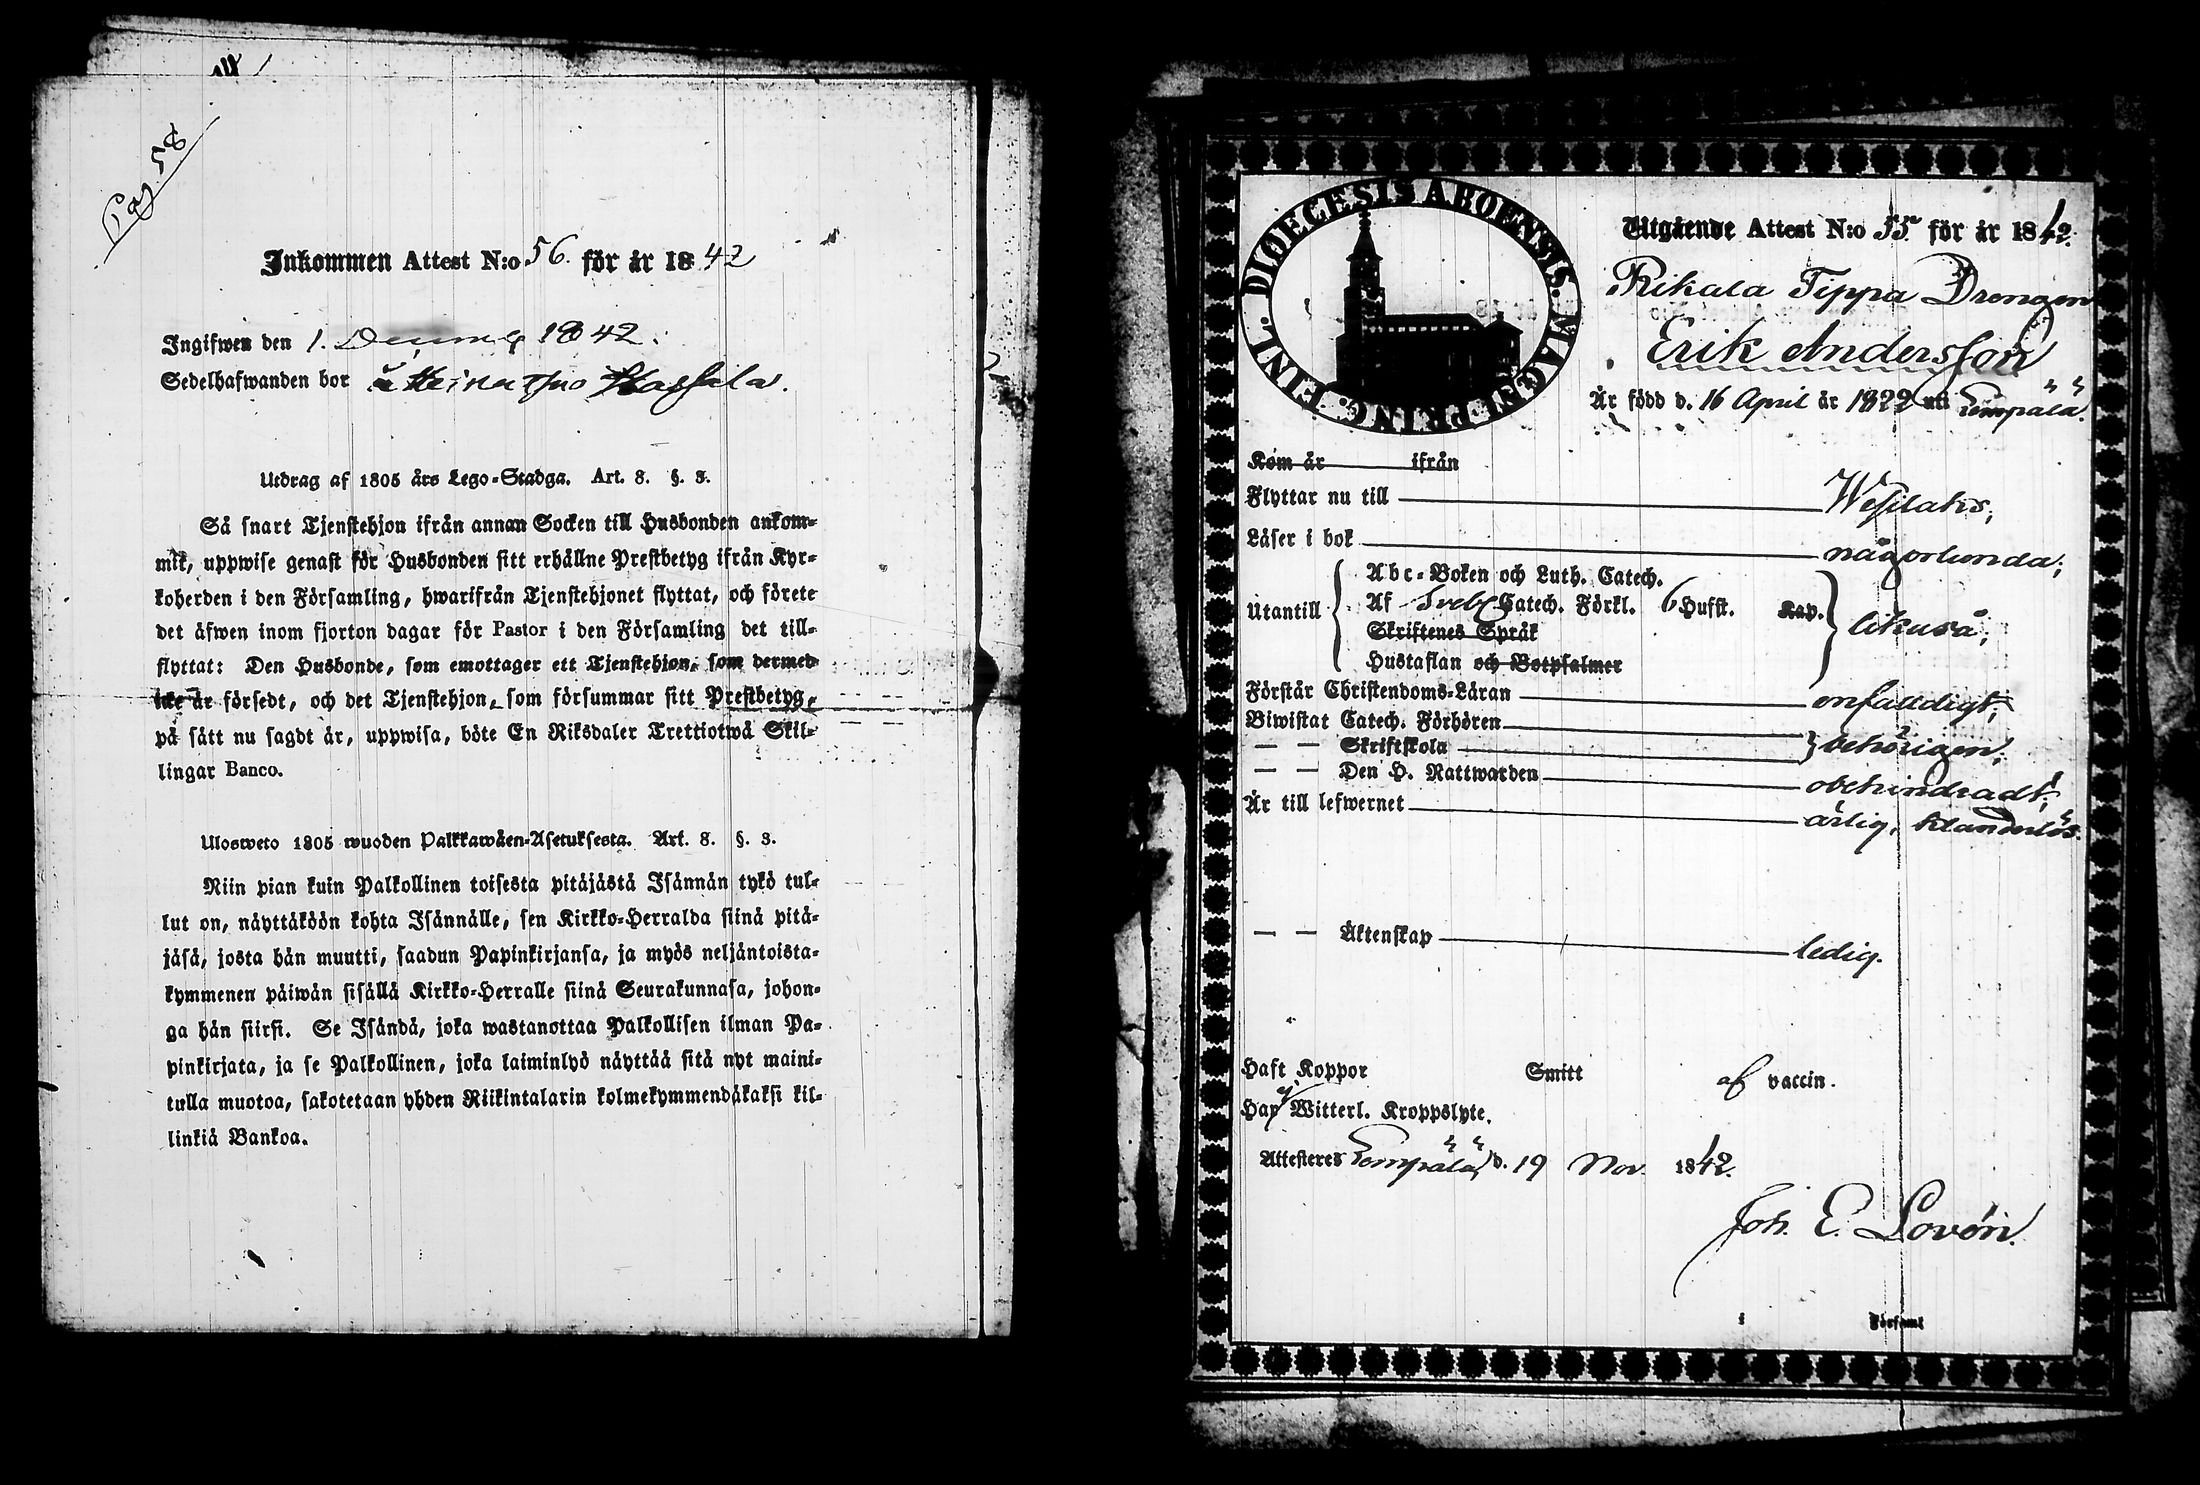 Pag. 58
Inkommen Attest N:o 56. för år 1842
Ingifwen den 1. Decemb 1842.
Sedelhafwanden bor å Heinaisno Hassila.
Utdrag af 1805 års Lego-Stadga. Art. 8. §. 3.
Så snart Tjenstehjon ifrån annan Socken till Husbonden ankom-
mit, uppwise genast för Husbonden sitt erhållne Prestbetyg ifrån Kyr-
koherden i den Församling, hwarifrån Tjenstehjonet flyttat, och förete
det äfwen inom fjorton dagar för Pastor i den Församling det till-
flyttat: Den Husbonde, som emottager ett Tjenstehjon, som dermed
icke är försedt, och det Tjenstehjon, som försummar sitt Prestbetyg,
på sätt nu sagdt är, uppwisa, böte En Riksdaler Trettiotwå Skil-
lingar Banco.
Ulosweto 1805 wuoden Palkkawäen-Asetuksesta. Art. 8. §. 3.
Niin pian kuin Palkollinen toisesta pitäjästä Isännän tykö tul-
lut on, näyttäköön kohta Isännälle, sen Kirkko-Herralda siinä pitä-
jäsä, josta hän muutti, saadun Papinkirjansa, ja myös neljäntoista-
kymmenen päiwän sisällä Kirkko-Herralle siinä Seurakunnasa, johon-
ga hän siirsi. Se Isändä, joka wastanottaa Palkollisen ilman Pa-
pinkirjata, ja se Palkollinen, joka laiminlyö näyttää sitä nyt maini-
tulla muotoa, sakotetaan yhden Riikintalarin kolmekymmendäkaksi kil-
linkiä Bankoa.
DIOECESIS ABOENSIS. MAGNI PRINC. FINL.
Utgående Attest N:o 55. för år 1842.
Rikala Tippa Drengen
Erik Andersson
Är född d. 16 April år 1822 uti Lempälä.
Kom år ifrån
Flyttar nu till Wesilaks;
Läser i bok någorlunda;
Utantill Abc-Boken och Luth. Catech.
Af Sveb. Catech. Förkl. 6 Hufst. Kap. likuså;
Skriftenes Språk
Hustaflan och Botpsalmer
Förstår Christendoms-Läran enfaldigt;
Biwistat Catech. Förhören
— — Skriftskola behörigen;
— — Den H. Nattwarden obehindradt;
Är till lefwernet ärlig, klanderlös.
— — Äktenskap ledig.
Haft Koppor Smitt af vaccin.
Har ej Witterl. Kroppslyte.
Attesteres Lempälä, d. 19 Nov. 1842.
Joh. E. Lovén.
i Församl